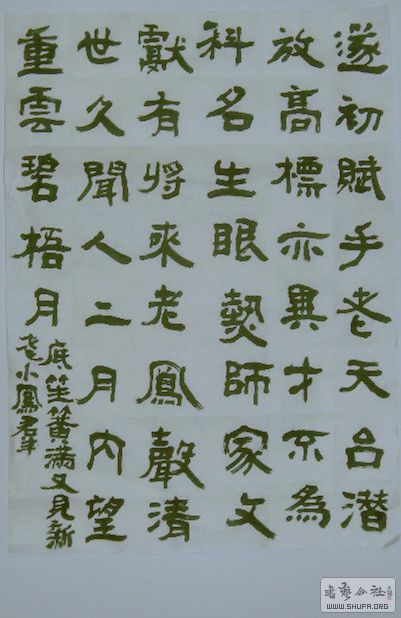 遂初賦手老天台潛
放高標亦異才不為
科名生眼熱師家文
獻有將來老鳳聲清
世久聞人二月內望
重雲碧梧月
底笙簧满又見新
老小鳳
書藝公社
WWW.SHUFA.ORG